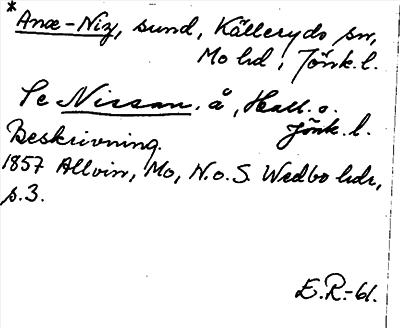 *Anæ-Niz, sund, Källeryds sn,
Mo hd, Jönk. l.
Se Nissan, å, Hall. o.
Jönk. l.
Beskrivning.
1857 Allvin, Mo, N. o. S. Wedbo hdr,
s. 3.
E.R.-61.